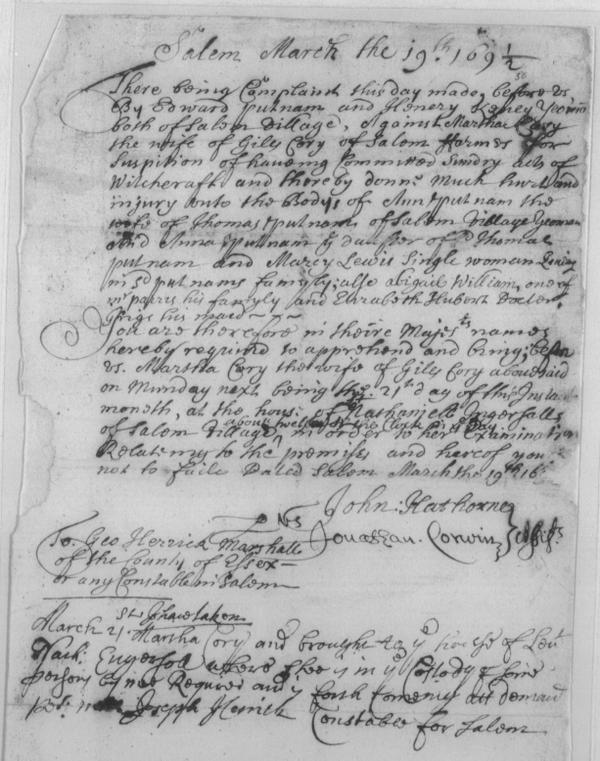 Salem March the 19th. 169½
There being Complaint this day made, before us
By Edward Putnam and Henery Keney Yeoman
both of Salem Village, Against Martha Cory
the wife of Gily Cory of Salem farmes for
Suspition of haveing Comitted Sundry acts of
Witchcraft and thereby donne Much hurt and
injury unto the Bodys of Ann Putnam the
wife of Thomas Putnam of Salem Village Yeoman
And Anna Putnam ye daughter of sd Thomas
putnam and Marcy Lewis Single woman Living
in sd putnams famyly; also abigail William, one of
mr parris his famyly and Elizabeth Hubert Docter
Grigs his maid
You are therefore in theire Majestts names
hereby required to apprehend and bring; before
us. Martha Cory the wife of Gily Cory abovesaid
on Munday next being the 21st day of this Instant
month, at the house of Nathaniell Ingersalls
of Salem Village about twelve of the Clock in ye day in order to her Examination
Relateing to the premises and hereof you are
not to faile Dated Salem March the 19th 16
John Hathorne
Jonathan. Corwin
Assists
To Geo Herrick Marshall
of the County of Essex
or any Constable in Salem
March 21st I have taken
Martha Cory and brought to ye house of Leut
Nath: Ingersoll where shee is in ye Costody of some
persons by mee Required and is forth Comeing att demand
per mee Joseph Herrick Constable for Salem